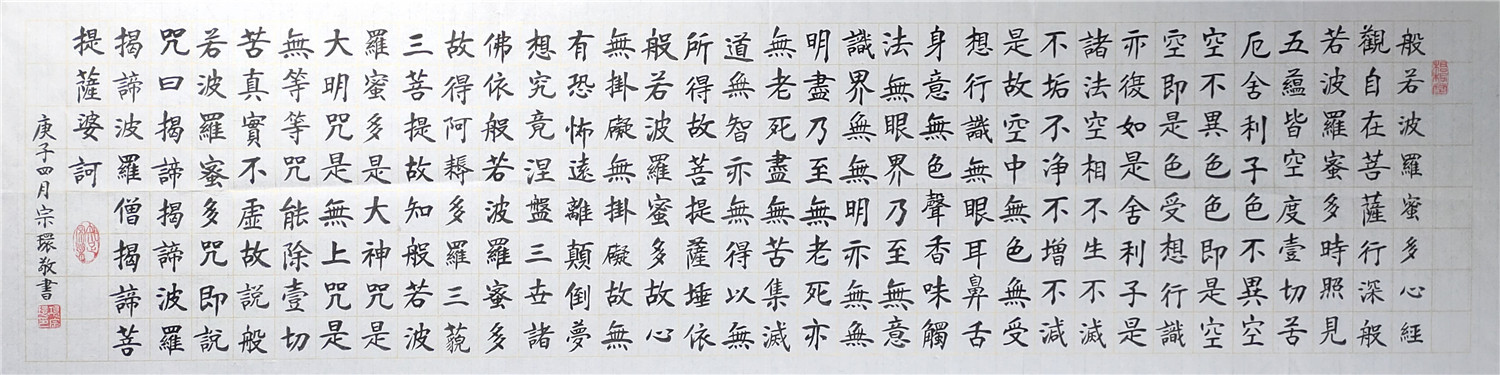 般若波羅蜜多心經
觀自在菩薩行深般
若波羅蜜多時照見
五蘊皆空度壹切苦
厄舍利子色不異空
空不異色色即是空
空即是色受想行識
亦復如是舍利子是
諸法空相不生不滅
不垢不净不增不減
是故空中無色無受
想行識無眼耳鼻舌
身意無色聲香味觸
法無眼界乃至無意
識界無無明亦無無
明盡乃至無老死亦
無老死盡無苦集滅
道無智亦無得以無
所得故菩提薩埵依
般若波羅蜜多故心
無掛礙無掛礙故無
有恐怖遠離顛倒夢
想究竟涅盤三世諸
佛依般若波羅蜜多
故得阿耨多羅三藐
三菩提故知般若波
羅蜜多是大神咒是
大明咒是無上咒是
無等等咒能除壹切
苦真實不虛故說般
若波羅蜜多咒即說
咒曰揭諦揭諦波羅
揭諦波羅僧揭諦菩
提薩婆訶
庚子四月宗環敬書